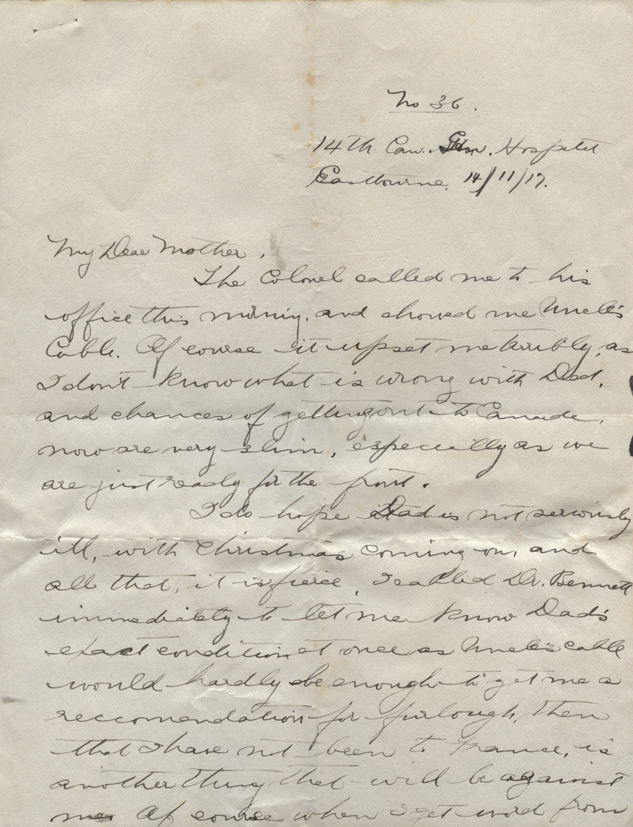 No 36.
14th Can. Gen. Hospital
Eastbourne, 14/11/17.
My Dear Mother,
The Colonel called me to his
office this morning, and showed me Uncle's
Cable. Of course it upset me terribly, as
I don't know what is wrong with Dad,
and chances of getting out to Canada,
now are very slim, especially as we
are just ready for the front.
I do hope Dad is not seriously
ill, with Christmas coming on, and
all that, it is fierce, I cabled Dr. Bennett
immediately to let me know Dad's
exact condition at once as Uncle's cable
would hardly be enough to get me a
reccomendation for furlough, then
that I have not been to France, is
another thing that will be against
me. Of course when I get word from